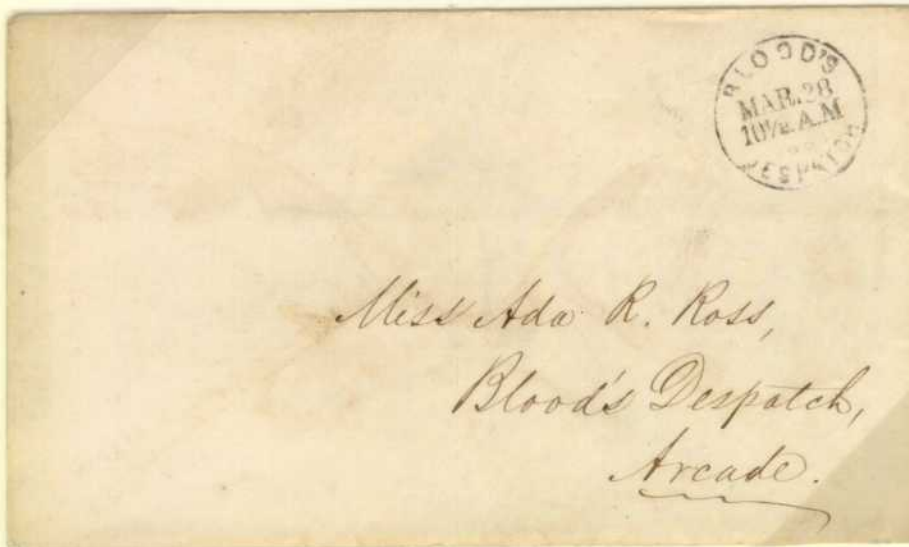 BLOOD'S
MAR. 28
10½ A.M
DESPATCH
Miss Ada R. Ross,
Blood's Despatch,
Arcade.